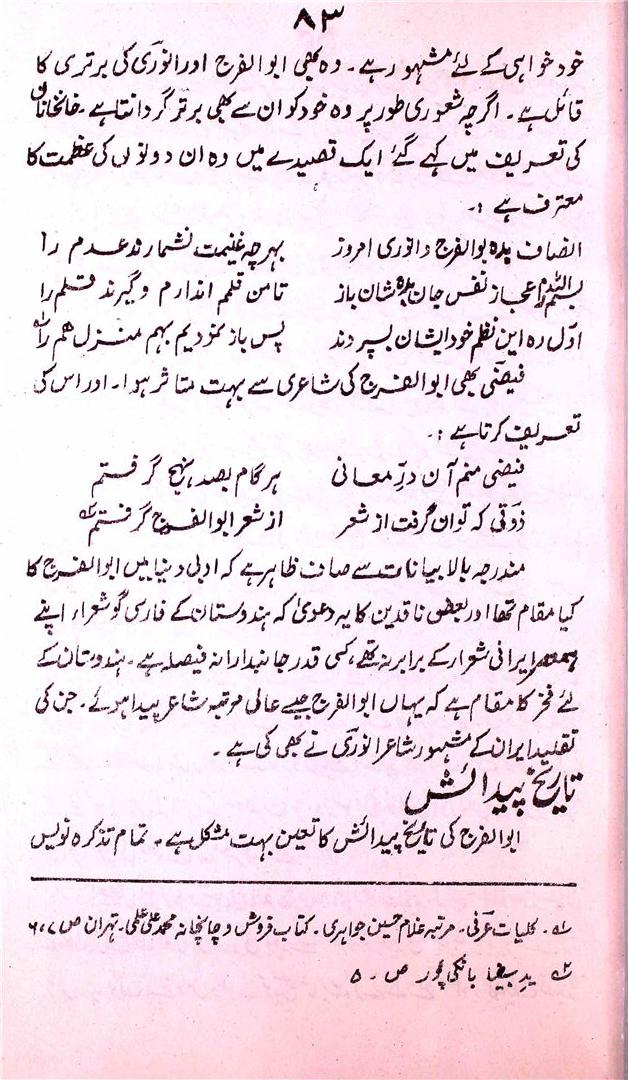 ۸۳
خود خواہی کے لئے مشہور ہے۔ وہ بھی ابوالفرج اور انوری کی برتری کا
قائل ہے۔ اگرچہ شعوری طور پر وہ خود کو ان سے بھی برتر گردانتا ہے۔ خانخاناں
کی تعریف میں کہے گئے ایک قصیدے میں وہ ان دونوں کی عظمت کا
معترف ہے :۔
انصاف بدہ بوالفرج و انوری امروز بہر چہ غنیمت نشمارند عدم را
بسم اللہ ز اعجاز نفس جاں بدہ شان باز تا من قلم اندازم و گیرند قلم را
اوّل رہ این نظم خود ایشان بسپردند پس باز نمودیم بہم منزل ہم را؎۱
فیضی بھی ابوالفرج کی شاعری سے بہت متاثر ہوا۔ اور اس کی
تعریف کرتا ہے :۔
فیضی منم آن درِّ معانی ہر گام بصد نہج گرفتم
ذوقی کہ توان گرفت از شعر از شعر ابوالفرج گرفتم؎۲
مندرجہ بالا بیانات سے صاف ظاہر ہے کہ ادبی دنیا میں ابوالفرج کا
کیا مقام تھا اور بعض ناقدین کا یہ دعویٰ کہ ہندوستان کے فارسی گو شعراء اپنے
ہمعصر ایرانی شعرار کے برابر نہ تھے، کسی قدر جانبدارانہ فیصلہ ہے۔ ہندوستان کے
لئے فخر کا مقام ہے کہ یہاں ابوالفرج جیسے عالی مرتبہ شاعر پیدا ہوئے۔ جن کی
تقلید ایران کے مشہور شاعر انوری نے بھی کی ہے۔
تاریخ پیدائش
ابوالفرج کی تاریخ پیدائش کا تعین بہت مشکل ہے۔ تمام تذکرہ نویس
؎۱۔ کلیات عرفی۔ مرتبہ غلام حسین جواہری۔ کتاب فروش و چاپخانہ محمد علی علمی۔ تہران ص ۶،۷
؎۲ یدِ بیضا بانکی پور ص۔ ۵